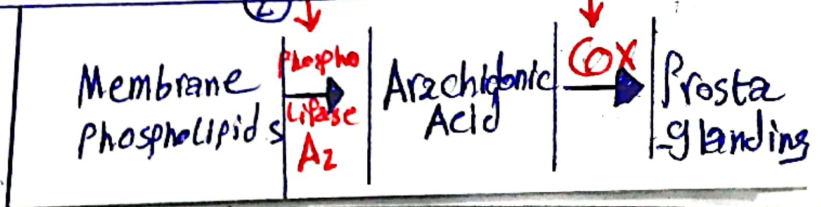 2
Membrane
Phospholipids
Phospho
Lipase
A2
Arachidonic
Acid
COX
Prosta
-glanding